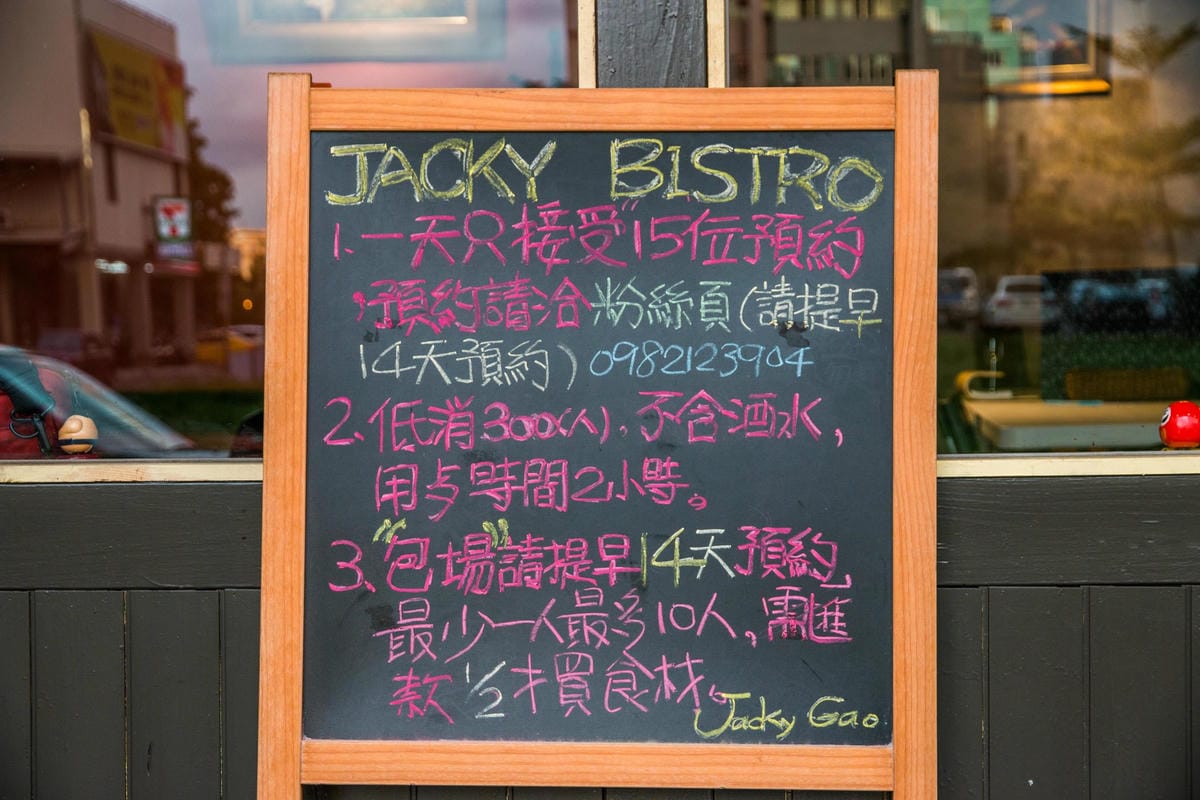 JACKY BISTRO
1、一天只接受"15位預約
，預約請洽粉絲頁(請提早
14天預約) 0982123904
2、低消3000(人)，不含酒水，
用歺時間2小時。
3、"包場"請提早14天預約，
最少一人最多10人，需匯
款1/2才買食材。
Jacky Gao
7